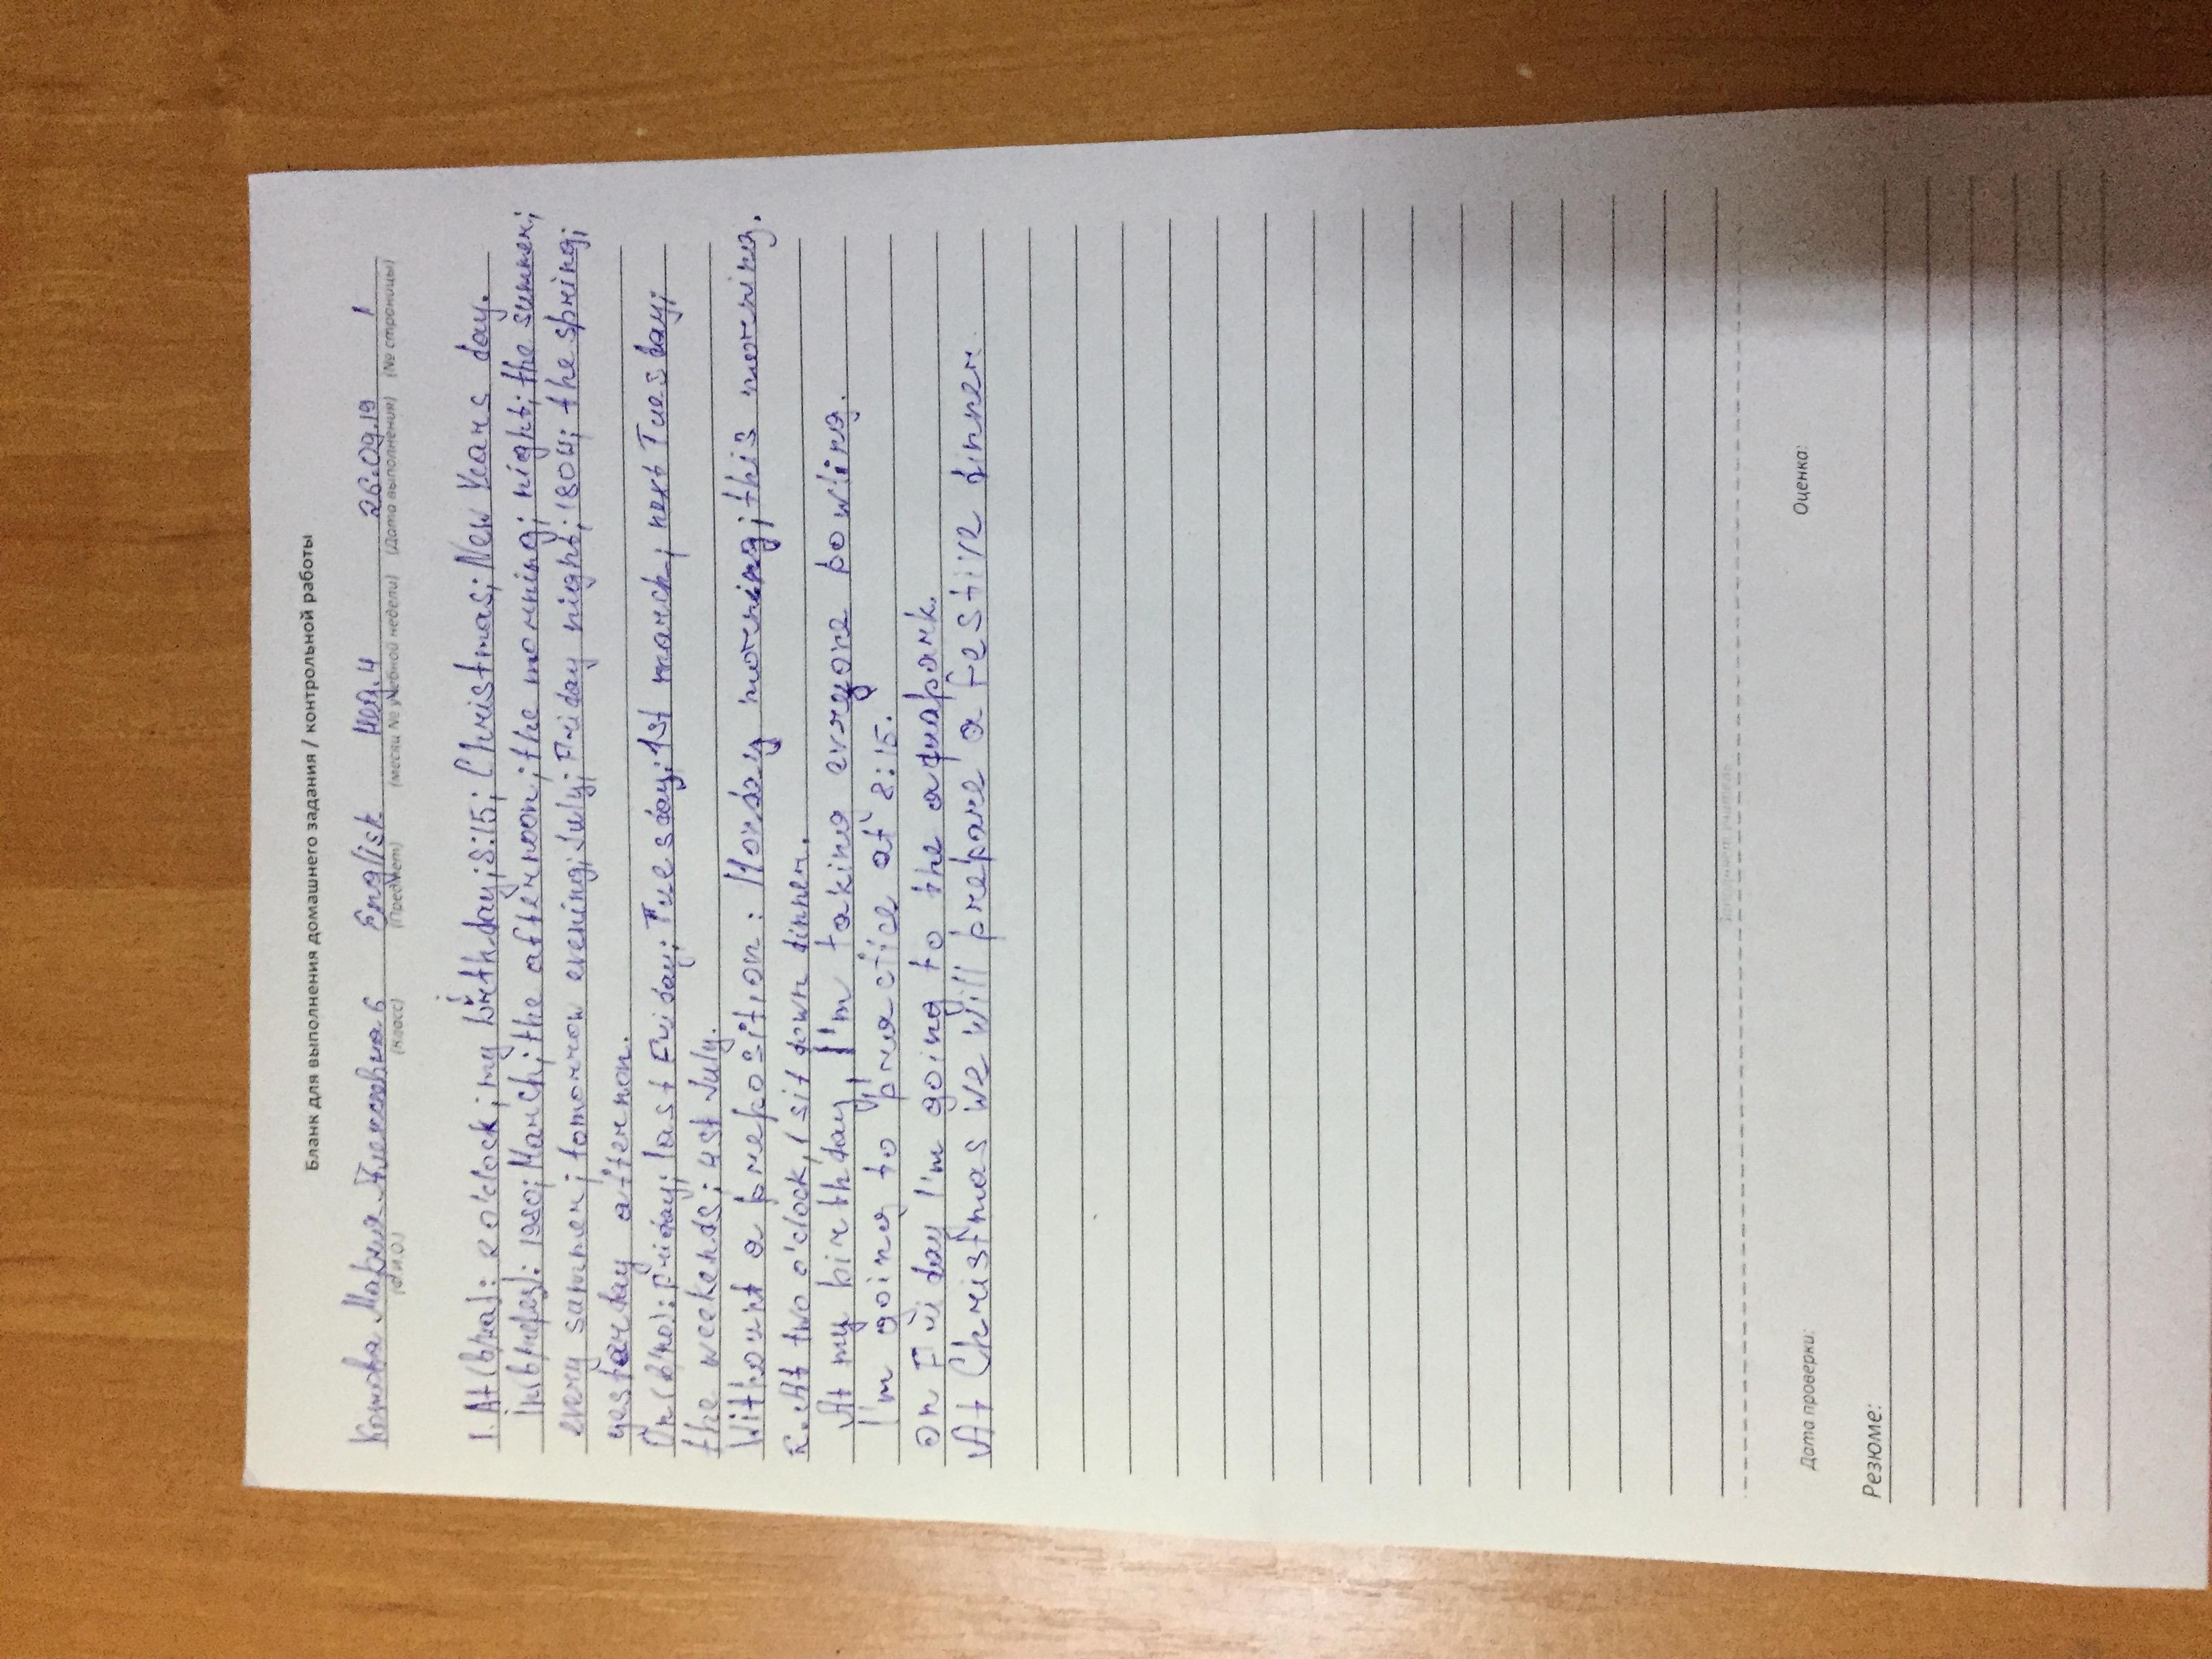 Бланк для выполнения домашнего задания / контрольной работы
Мария Алексеевна 6 English нед.4 26.09.19 1
(Ф.И.О.) (Класс) (Предмет) (месяц № учебной недели) (Дата выполнения) (№ страницы)
1. At : 2 o'clock; my birthday; 8:15; Christmas; New Years day.
In : 1980; March; the afternoon; the morning; night; the summer;
every summer; tomorrow evening; July; Friday night; 1804; the spring;
yesterday afternon.
On : Friday; last Friday; Tuesday; 1st march; next Tuesday;
the weekends; 4st July.
Without a preposition: Monday morning; this morning.
2. At two o'clock, I sit down dinner.
At my birthday, I'm taking everyone bowling.
I'm going to practice at 8:15.
On Friday I'm going to the aquapark.
At Christmas we will prepare a festive dinner.
Дата проверки: Оценка:
Резюме: